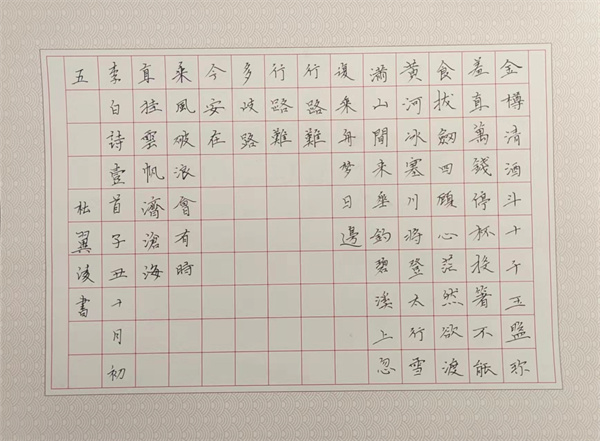 金樽清酒斗十千玉盤珍
羞直萬錢停杯投箸不能
食拔劍四顧心茫然欲渡
黄河冰塞川將登太行雪
滿山閒來垂釣碧溪上忽
復乘舟梦日邊
行路難
行路難
多歧路
今安在
乘風破浪會有時
直挂雲帆濟滄海
李白詩壹首子丑十月初
五 杜翼凌書